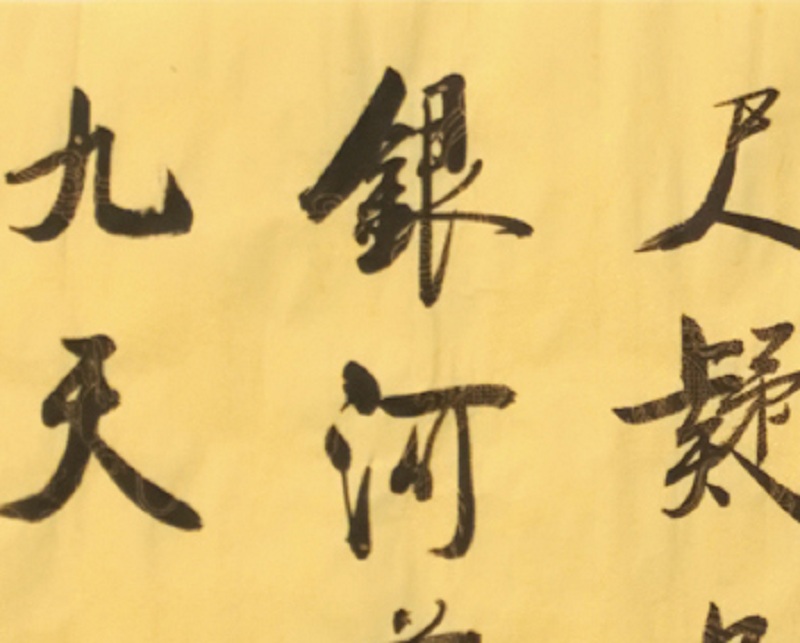 尺疑
銀河
九天